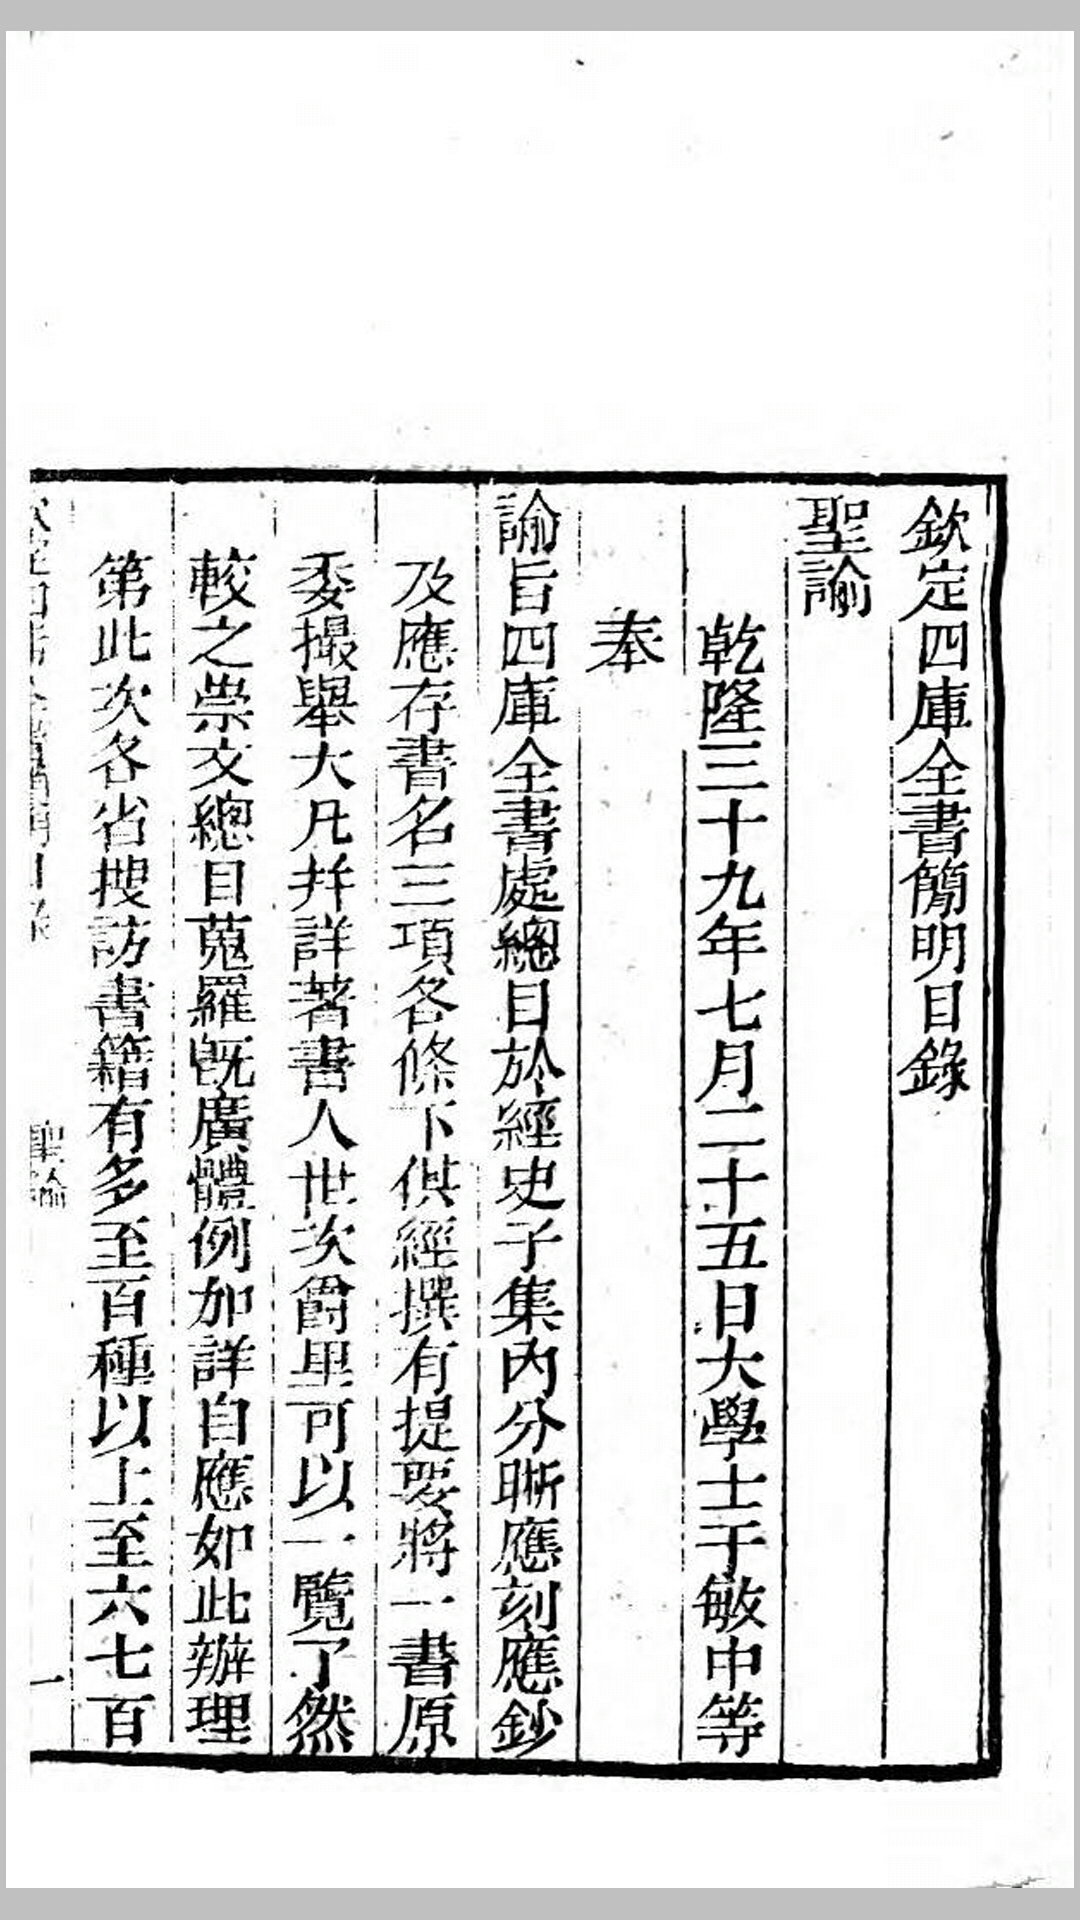 欽定四庫全書簡明目錄
聖諭
乾隆三十九年七月二十五日大學士于敏中等
奉
諭旨四庫全書處總目於經史子集內分晰應刻應鈔
及應存書名三項各條下俱經撰有提要將一書原
委撮舉大凡幷詳著書人世次爵里可以一覽了然
較之崇文總目蒐羅旣廣體例加詳自應如此辦理
第此次各省搜訪書籍有多至百種以上至六七百
聖諭
一